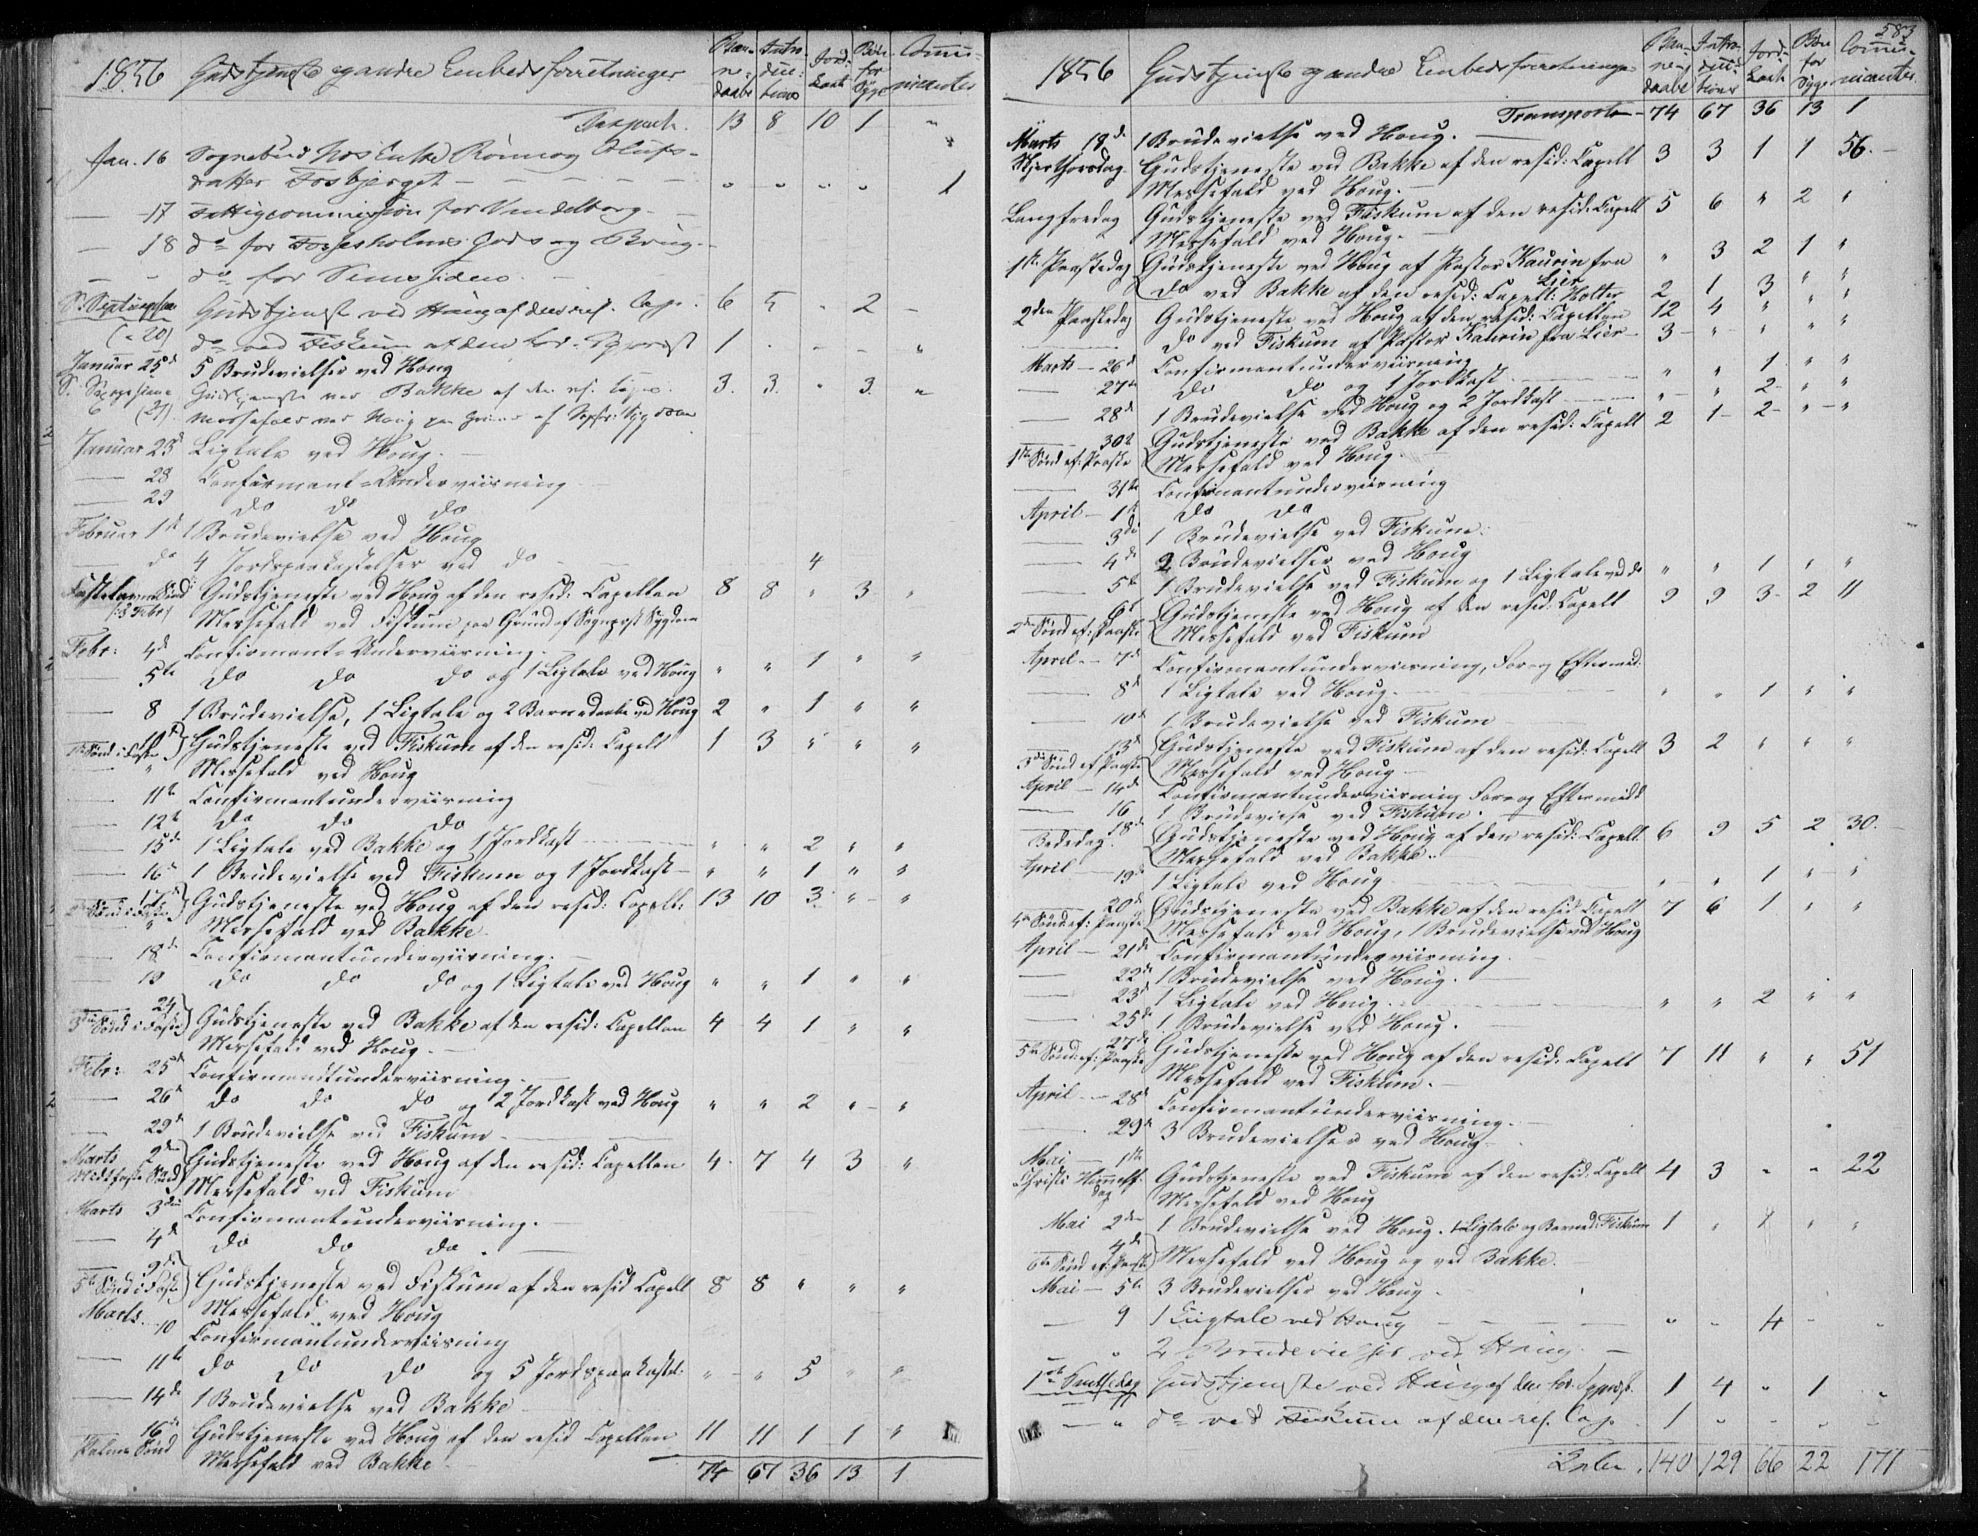 1856 Gudstjeneste og andre Embedsforretninger Barnedaabe Introductions Jordkast Bøn for Syge Communicanter
Transport. 13 8 10 1 "
Jan. 16 Sognebud hos Enke Rønnog Olufs-
datter Fosbjerget — " " " " 1
— 17 Fattigcommission for Vendelborg. —
— 18 do for Fossesholms Gods og Brug. —
— " do for Simssiden. —
S. Septuages. Gudstjeneste ved Houg af den res. Cap. 6 5 " 2 —
(20) do ved Fiskum af den for. Sgprest 1 . . . "
Januar 25d 5 Brudevielser ved Houg
S. Sexagesima Gudstjeneste ved Bakke af den res. Cap. 3. 3. " 3. "
(27) Messefald ved Houg paa Grund af Sognepr: Sygdom
Januar 25d Ligtale ved Houg. —
— 28 Confirmant-Underviisning —
— 29 do do do
Februar 1st 1 Brudevielse ved Houg
— do 4 Jordspaakastelser ved do — 4
Fastelavns Sønd: Gudstjeneste ved Houg af den resid: Capellan 8 8 " 3 "
(:3 Febr) Messefald ved Fiskum paa Grund af Sognepr Sygdom
Febr: 4d Confirmant-Underviisning. —
— 5te do do do og 1 Ligtale ved Houg " " 1 " "
— 8 1 Brudevielse, 1 Ligtale og 2 Barnedaabe ved Houg 2 " 1 " "
1ste Sønd i Faste 10 Gudstjeneste ved Fiskum af den resid: Capell 1 3 " " "
— " Messefald ved Houg
— 11te Confirmantunderviisning
— 12te do do do
— 15de 1 Ligtale ved Bakke og 1 Jordkast — " " 2 " "
— 16d 1 Brudevielse ved Fiskum og 1 Jordkast — " " 1 " "
2den Sønd i Faste 17d Gudstjeneste ved Houg af den resid: Capell: 13 10 3 " "
— " Messefald ved Bakke
— 18de Confirmantunderviisning. —
— 19 do do do og 1 Ligtale ved Houg " " 1 " "
24
3die Sønd i Faste Gudstjeneste ved Bakke af den resid: Capellan 4 4 1 " "
Messefald ved Houg. —
Febr: 25d Confirmandtunderviisning. —
— 26d do do do og 2 Jordkast ved Houg " " 2 " "
— 29d 1 Brudevielse ved Fiskum —
Marts 2den Gudstjeneste ved Houg af den resid: Capellan 4. 7 4 3 "
Midtfaste Sønd Messefald ved Fiskum
Marts 3die Confirmantunderviisning. —
— 4d do do do. —
— 9de
5te Sønd i Faste Gudstjeneste ved Fiskum af den resid Capell 8 8 " " "
Marts. Messefald ved Houg
— 10 Confirmantunderviisning
— 11te do do do og 5 Jordspaakastel: " " 5 " "
— 14de 1 Brudevielse ved Bakke
16d Gudstjeneste ved Houg af den resid Capellan 11 11 1 1 "
Palme Sønd Messefald ved Bakke —
74 67 36 13 1
583
1856 Gudstjeneste og andre Embedsforretninger Barnedaabe Introductions Jordkast Bøn for Syge Communicanter
Transport — 74 67 36 13 1
Marts 19d. 1 Brudevielse ved Houg. —
Skjertthorsdag Gudstjeneste ved Bakke af den resid: Capell 3 3 1 1 56. —
Messefald ved Houg. —
Langfredag Gudstjeneste ved Fiskum af den resid: Capell 5 6 " 2 "
Messefald ved Houg. —
1ste Paaskedag Gudstjeneste ved Houg af Pastor Kaurin fra Lier " 3 2 1 "
do ved Bakke af den resid: Capell: Holter 2 1 3 " "
2den Paaskedag Gudstjeneste ved Houg af den resid: Capellan 12 4 " " "
do ved Fiskum af Pastor Kaurin fra Lier — 3 — " " " "
Marts — 26d Confirmantunderviisning
— 27de do do og 1 Jordkast — " " 1 " "
— 28d 1 Brudevielse ved Houg og 2 Jordkast — " " 2 " "
30te Gudstjeneste ved Bakke af den resid: Capell 2 1 — 2 — " "
1ste Sønd ef: Paaske Messefald ved Houg. —
— 31te Confirmantunderviisning
April — 1st do do
— 3die 1 Brudevielse ved Fiskum.
— 4d 2 Brudevielser ved Houg
— 5te 1 Brudevielse ved Fiskum og 1 Ligtale ved do " " 1 " "
6te Gudstjeneste ved Houg af den resid: Capell 9 9 3 2 11
2den Sønd ef: Paaske Messefald ved Fiskum
April — 7d Confirmantunderviisning, For og Eftermid.
— 8d 1 Ligtale ved Houg. — " " 1 " "
— 10d 1 Brudevielse ved Fiskum —
— 13d Gudstjeneste ved Fiskum af den resid: Capell 3 2 " " "
3die Sønd ef Paaske Messefald ved Houg —
April — 14d Confirmantunderviisning For og Eftermidd
— 16 1 Brudevielse ved Fiskum. —
18d Gudstjeneste ved Houg af den resid: Capell. 6 9 5 2 30. —
Bededag. Messefald ved Bakke.
April — 19d 1 Ligtale ved Houg — " " 1 " "
20d Gudstjeneste ved Bakke af den resid Capell 7 6 1 " "
4de Sønd ef: Paaske Messefald ved Houg, 1 Brudevielse ved Houg
April — 21de Confirmantunderviisning. —
— 22de 1 Brudevielse ved Houg. —
— 23d 1 Ligtale ved Houg. — " " 2 " "
— 25d 1 Brudevielse ved Houg. —
27de
5te Sønd: ef: Paaske Gudstjeneste ved Houg af den resid: Capell 7 11 " " 51
Messefald ved Fiskum. —
April — 28d Confirmantunderviisning. —
— 29d 3 Brudevielser ved Houg —
Mai — 1ste
Christi Himmelf. dag Gudstjeneste ved Fiskum af den resid: Capell 4 3 " " 22
Messefald ved Houg
Mai 2den 1 Brudevielse ved Houg. 1 Ligtale og Barned: Fiskum 1 " 1 " "
4de
6te Sønd ef: Paaske Messefald ved Houg og ved Bakke. —
Mai — 5te 3 Brudevielser ved Houg —
— 9 1 Liigtale ved Houg — " " 4 " "
— " 2 Brudevielser ved Houg. —
1ste Pintsedag Gudstjeneste ved Houg af den for. Sgprest. 1 4 " 1 "
— " do ved Fiskum af den res. Cap. 1 " " " "
Later. 140 129 66 22 171